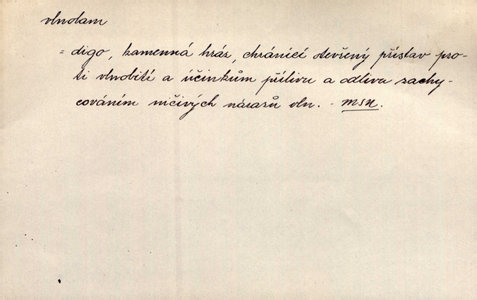 vlnolam
= digo, kamenná hráz, chránící otevřený přístav pro-
ti vlnobití a účinkům přílivu a odlivu zachy-
cováním ničivých nárazů vln. - msn.